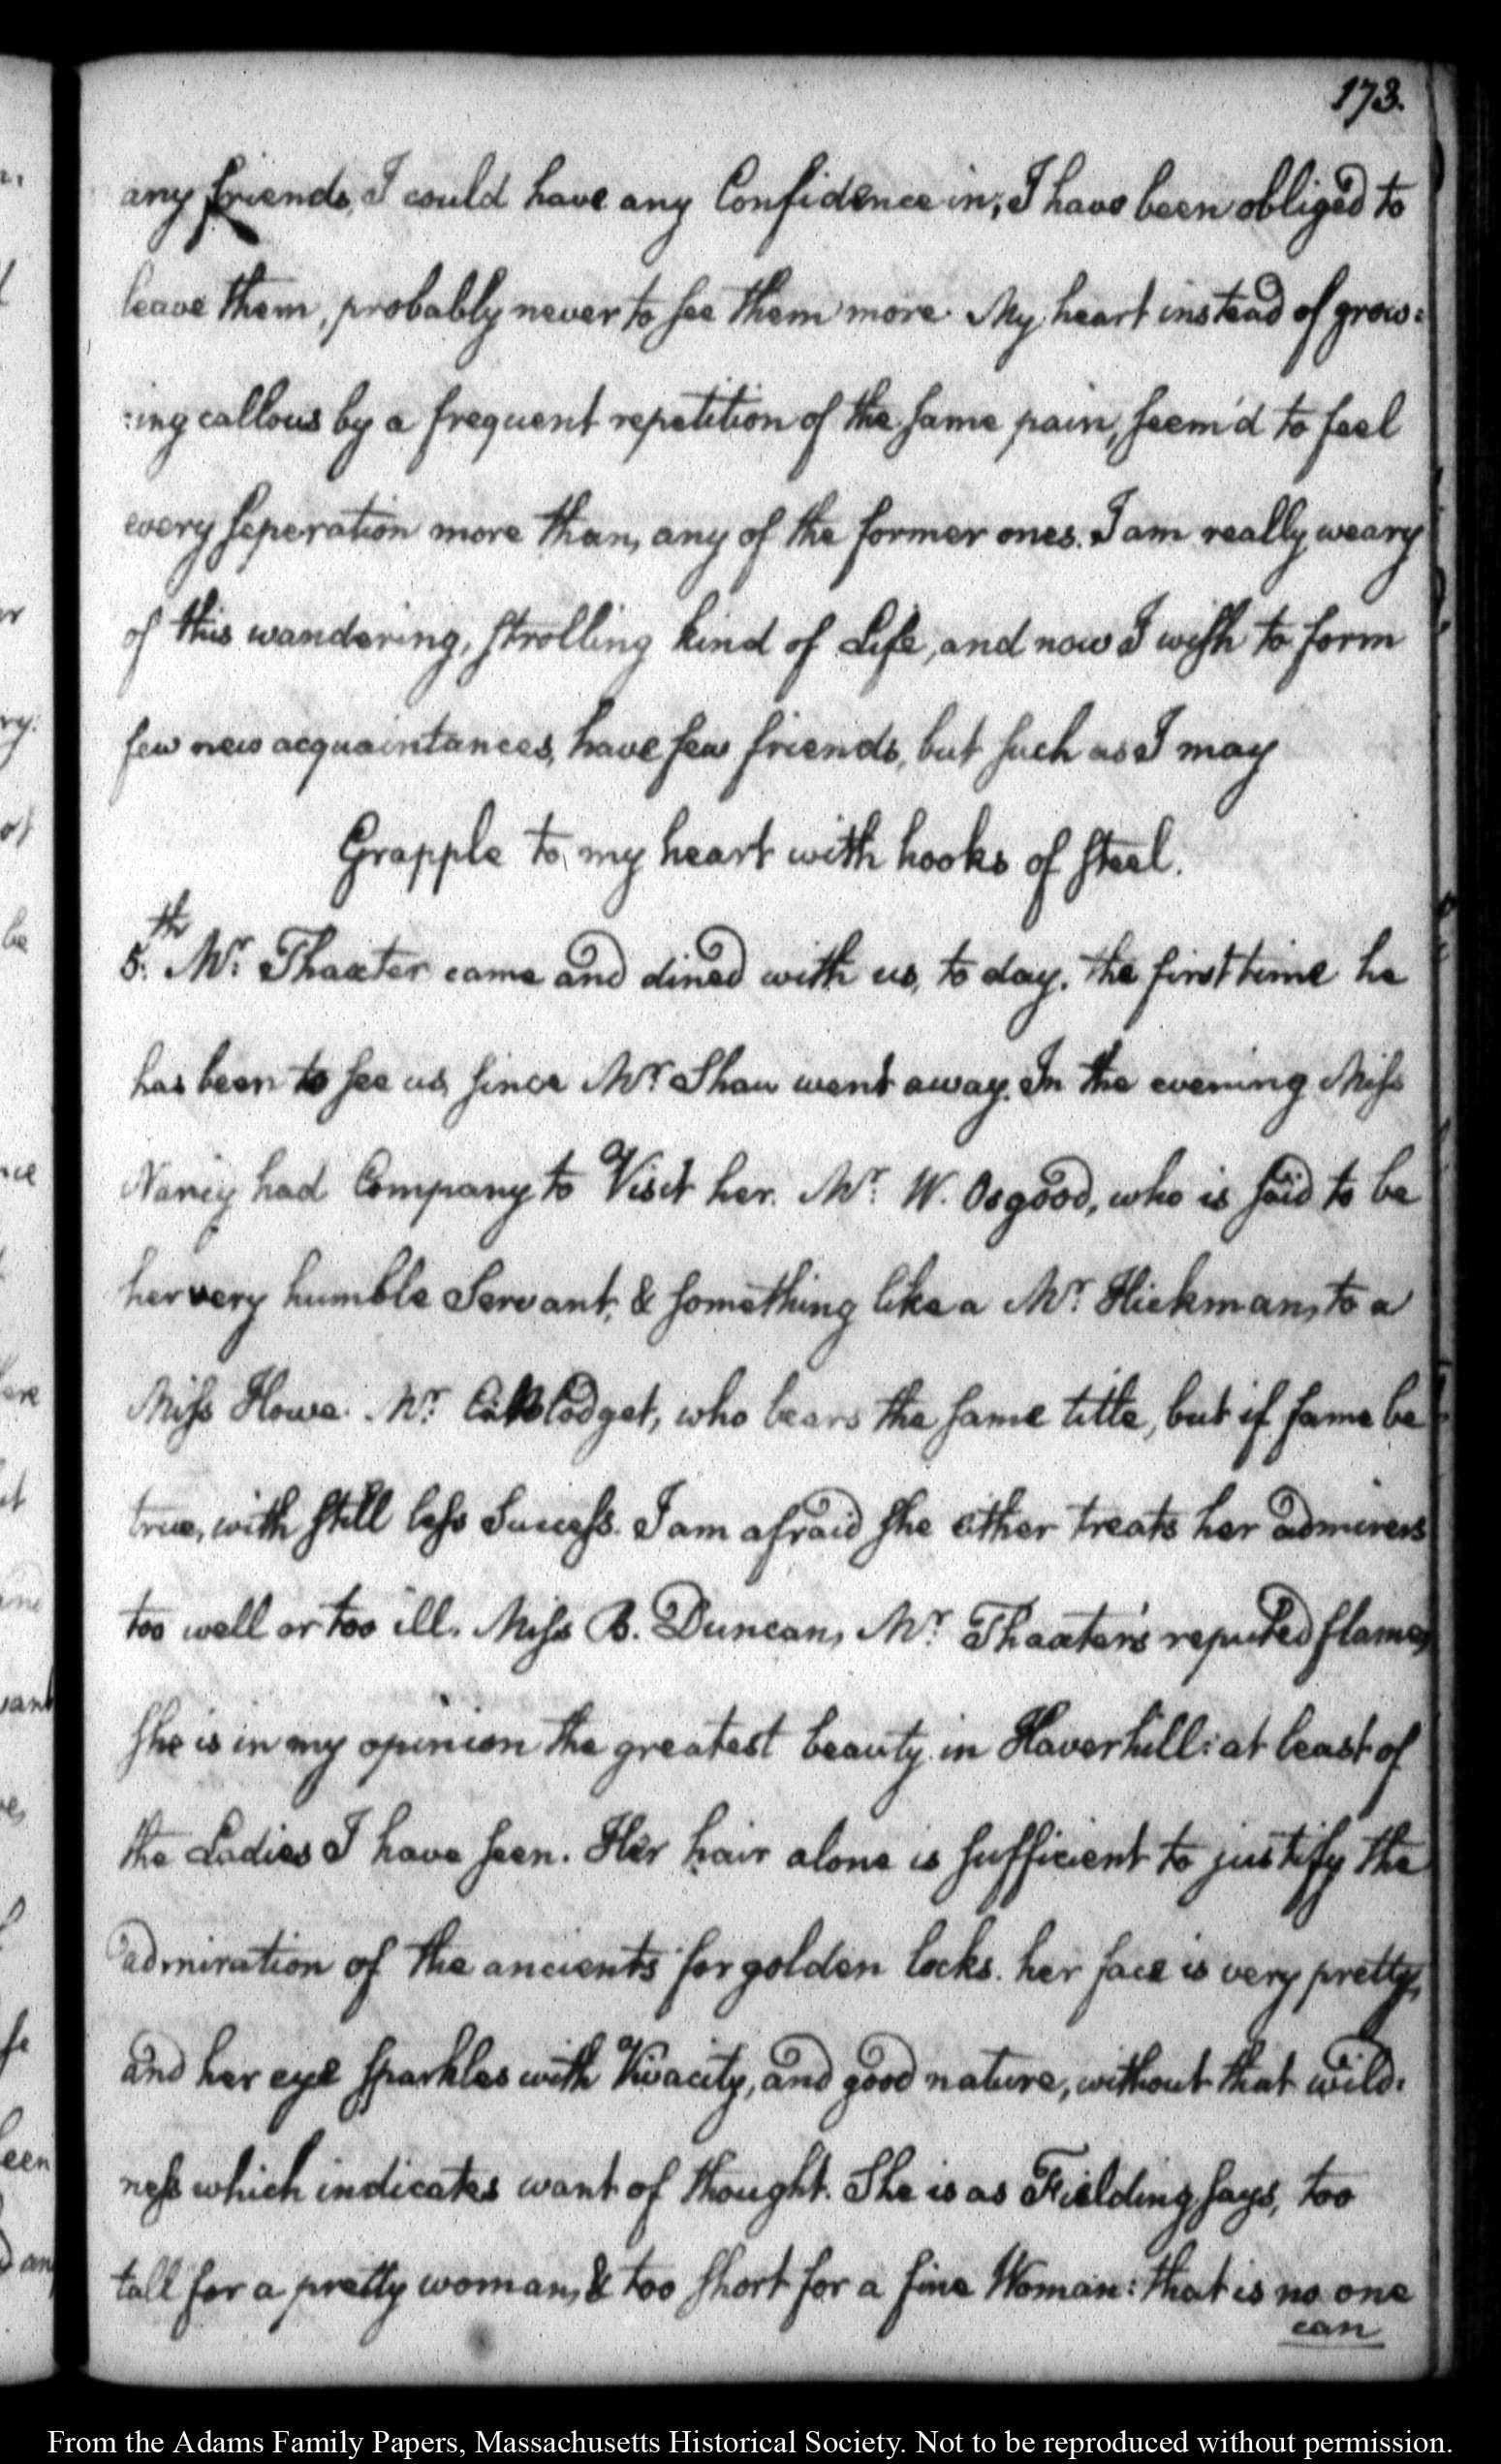 173.
any friends, I could have any Confidence in, I have been obliged to
leave them, probably never to see them more. My heart instead of grow:
:ing callous by a frequent repetition of the same pain, seem'd to feel
every seperation more than, any of the former ones. I am really weary
of this wandering, strolling kind of Life, and now I wish to form
few new acquaintances, have few friends, but such as I may
Grapple to my heart with hooks of steel.
5.th Mr. Thaxter came and dined with us, to day. the first time he
has been to see us, since Mr. Shaw went away. In the evening Miss
Nancy had Company to Visit her. Mr. W. Osgood, who is said to be
her very humble Servant, & something like a Mr. Hickman, to a
Miss Howe. Mr. Blodget, who bears the same title, but if fame be
true, with still less Success. I am afraid she either treats her admirers
too well or too ill. Miss B. Duncan, Mr. Thaxter's reputed flame,
she is in my opinion the greatest beauty in Haverhill: at least of
the Ladies I have seen. Her hair alone is sufficient to justify the
admiration of the ancients for golden locks. her face is very pretty,
and her eye sparkles with Vivacity, and good nature, without that wild:
ness which indicates want of thought. She is as Fielding says, too
tall for a pretty woman, & too short for a fine Woman: that is no one
can
From the Adams Family Papers, Massachusetts Historical Society. Not to be reproduced without permission.